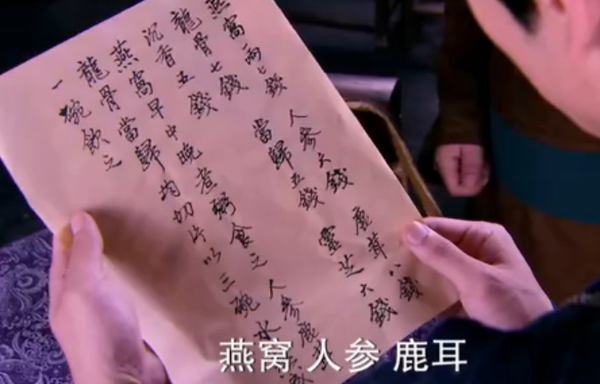 燕窩兩七錢 人參六錢 鹿茸八錢
龍骨七錢 當歸五錢 靈芝六錢
沉香五錢
燕窩早中晚煮粥食之 人參鹿
龍骨當歸均切片以三碗水
一碗飲之
燕窝 人参 鹿耳